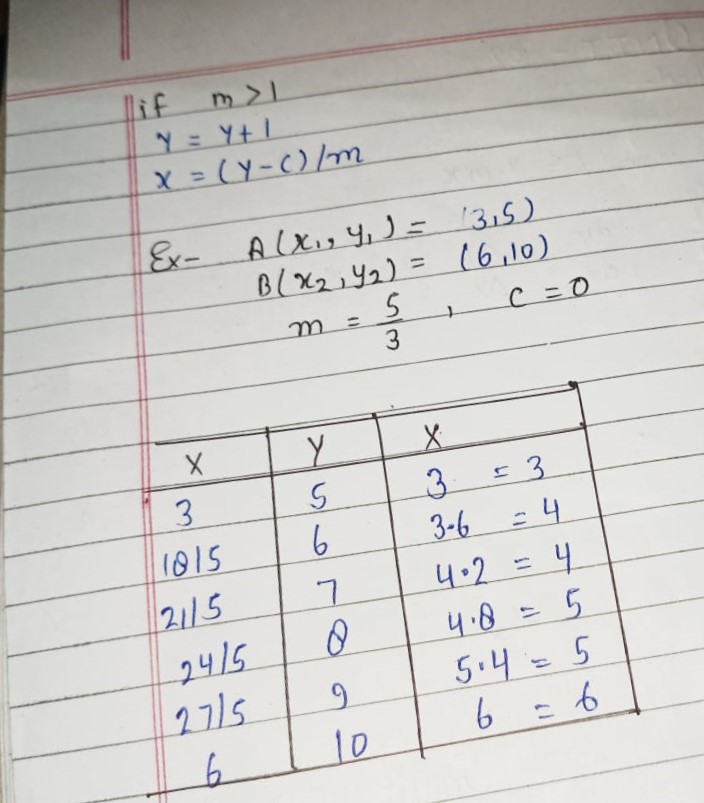 if m > 1
y = y + 1
x = (y - c) / m
Ex- A(x₁, y₁) = (3,5)
B(x₂, y₂) = (6,10)
m = 5/3 , c = 0
X Y X
3 5 3 = 3
18/5 6 3.6 = 4
21/5 7 4.2 = 4
24/5 8 4.8 = 5
27/5 9 5.4 = 5
6 10 6 = 6